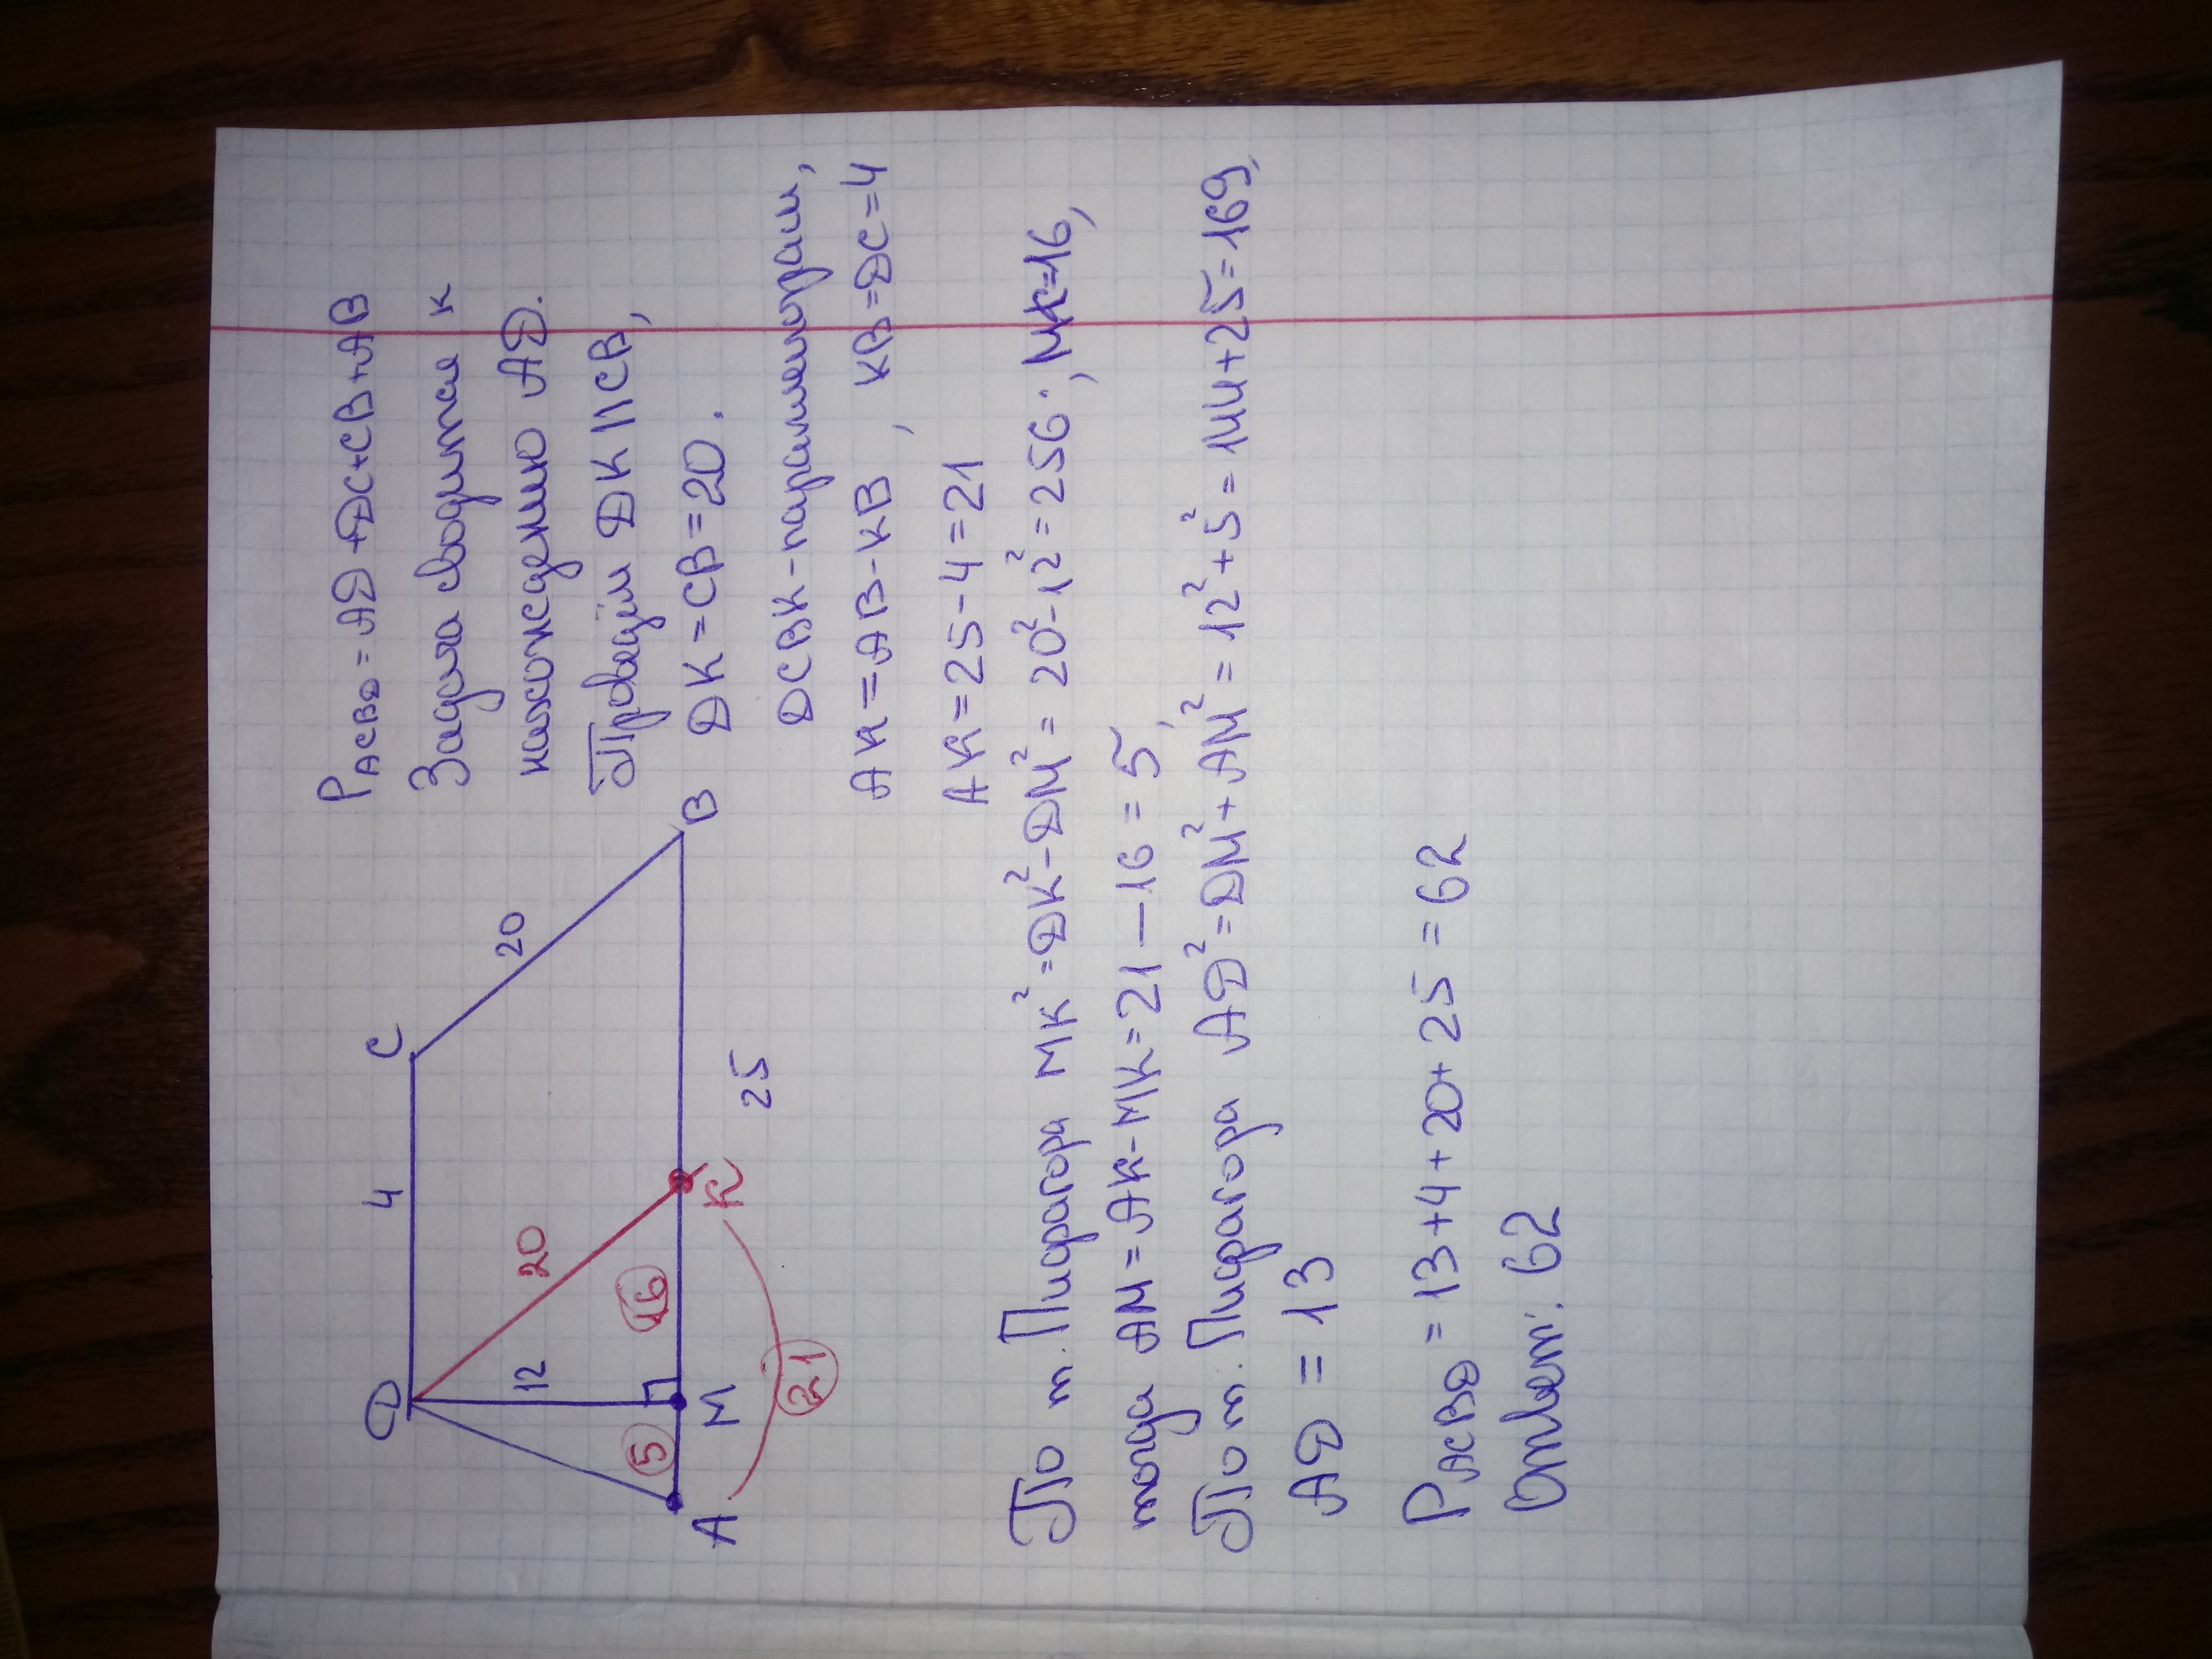 D
4
C
20
20
12
5
16
A
M
K
B
25
21
P ACBD = AD + DC + CB + AB
Задача сводится к
нахождению AD.
Проведём DK || CB,
DK = CB = 20.
DCBK - параллелограм,
AK = AB - KB , KB = DC = 4
AK = 25 - 4 = 21
По т. Пифагора MK² = DK² - DM² = 20² - 12² = 256 ; MK = 16,
тогда AM = AK - MK = 21 — 16 = 5,
По т. Пифагора AD² = DM² + AM² = 12² + 5² = 144 + 25 = 169,
AD = 13
P ACBD = 13 + 4 + 20 + 25 = 62
Ответ: 62